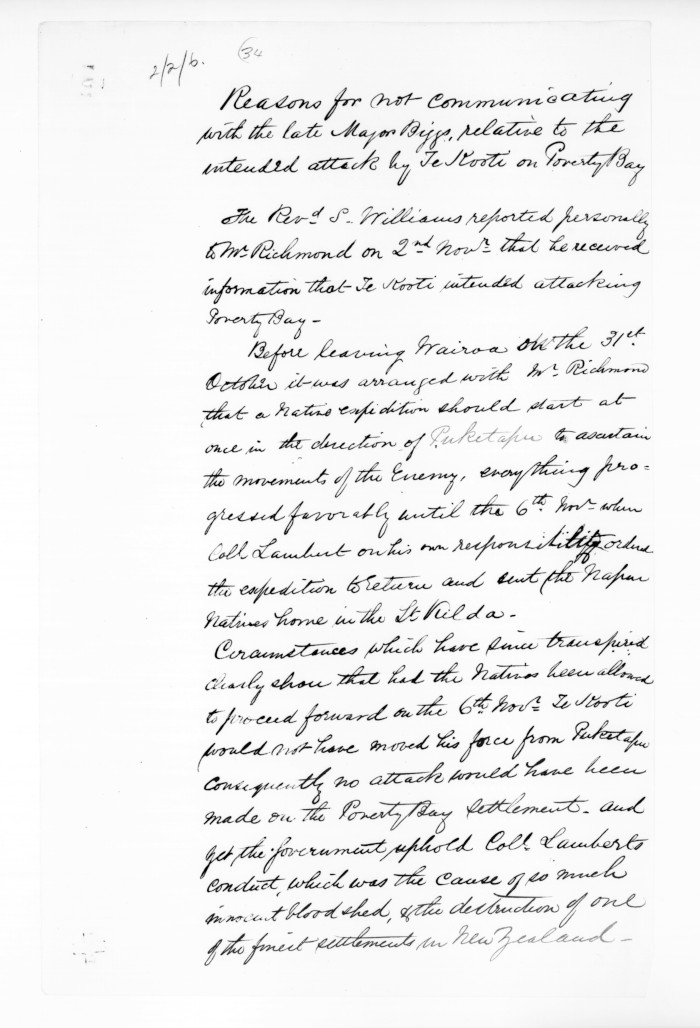 2/2/6. 34
Reasons for not communicating
with the late Major Biggs, relative to the
intended attack by Te Kooti on Poverty Bay
The Revd S. Williams reported personally
to Mr Richmond on 2nd Novr that he received
information that Te Kooti intended attacking
Poverty Bay -
Before leaving Wairoa on the 31st
October it was arranged with Mr Richmond
that a Native expidition should start at
once in the direction of Puketapu to ascertain
the movements of the Enemy, everything pro=
gressed favorably until the 6th Novr when
Coll Lambert on his own responsibility ordered
the expedition to return and sent the Napier
Natives home in the St Kilda -
Circumstances which have since transpired
clearly show that had the Natives been allowed
to proceed forward on the 6th Novr Te Kooti
would not have moved his force from Puketapu
Consequently no attack would have been
made on the Poverty Bay settlement - and
yet the Government uphold Coll Lamberts
conduct, which was the cause of so much
innocent blood shed, & the destruction of one
of the finest settlements in New Zealand -